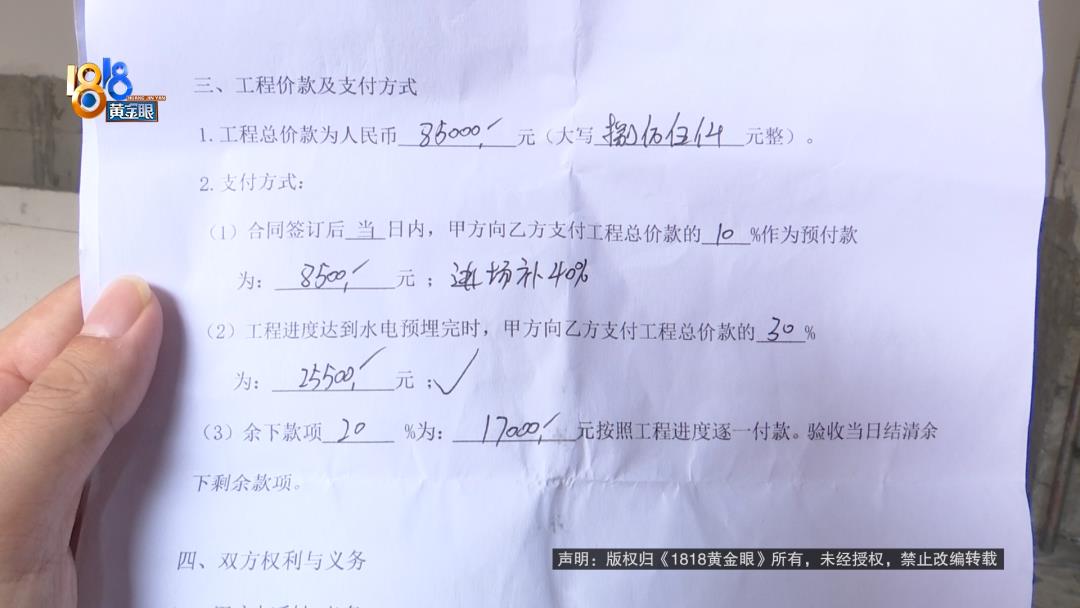 1818
HUANG JIN YAN
黄金眼
三、工程价款及支付方式
1.工程总价款为人民币 85000,- 元（大写 捌佰伍仟 元整）。
2.支付方式：
（1）合同签订后 当 日内，甲方向乙方支付工程总价款的 10 %作为预付款
为： 8500,- 元；进场补40%
（2）工程进度达到水电预埋完时，甲方向乙方支付工程总价款的 30 %
为： 25500,- 元；✓
（3）余下款项 20 %为： 17000,- 元按照工程进度逐一付款。验收当日结清余
下剩余款项。
四、双方权利与义务
声明：版权归《1818黄金眼》所有，未经授权，禁止改编转载